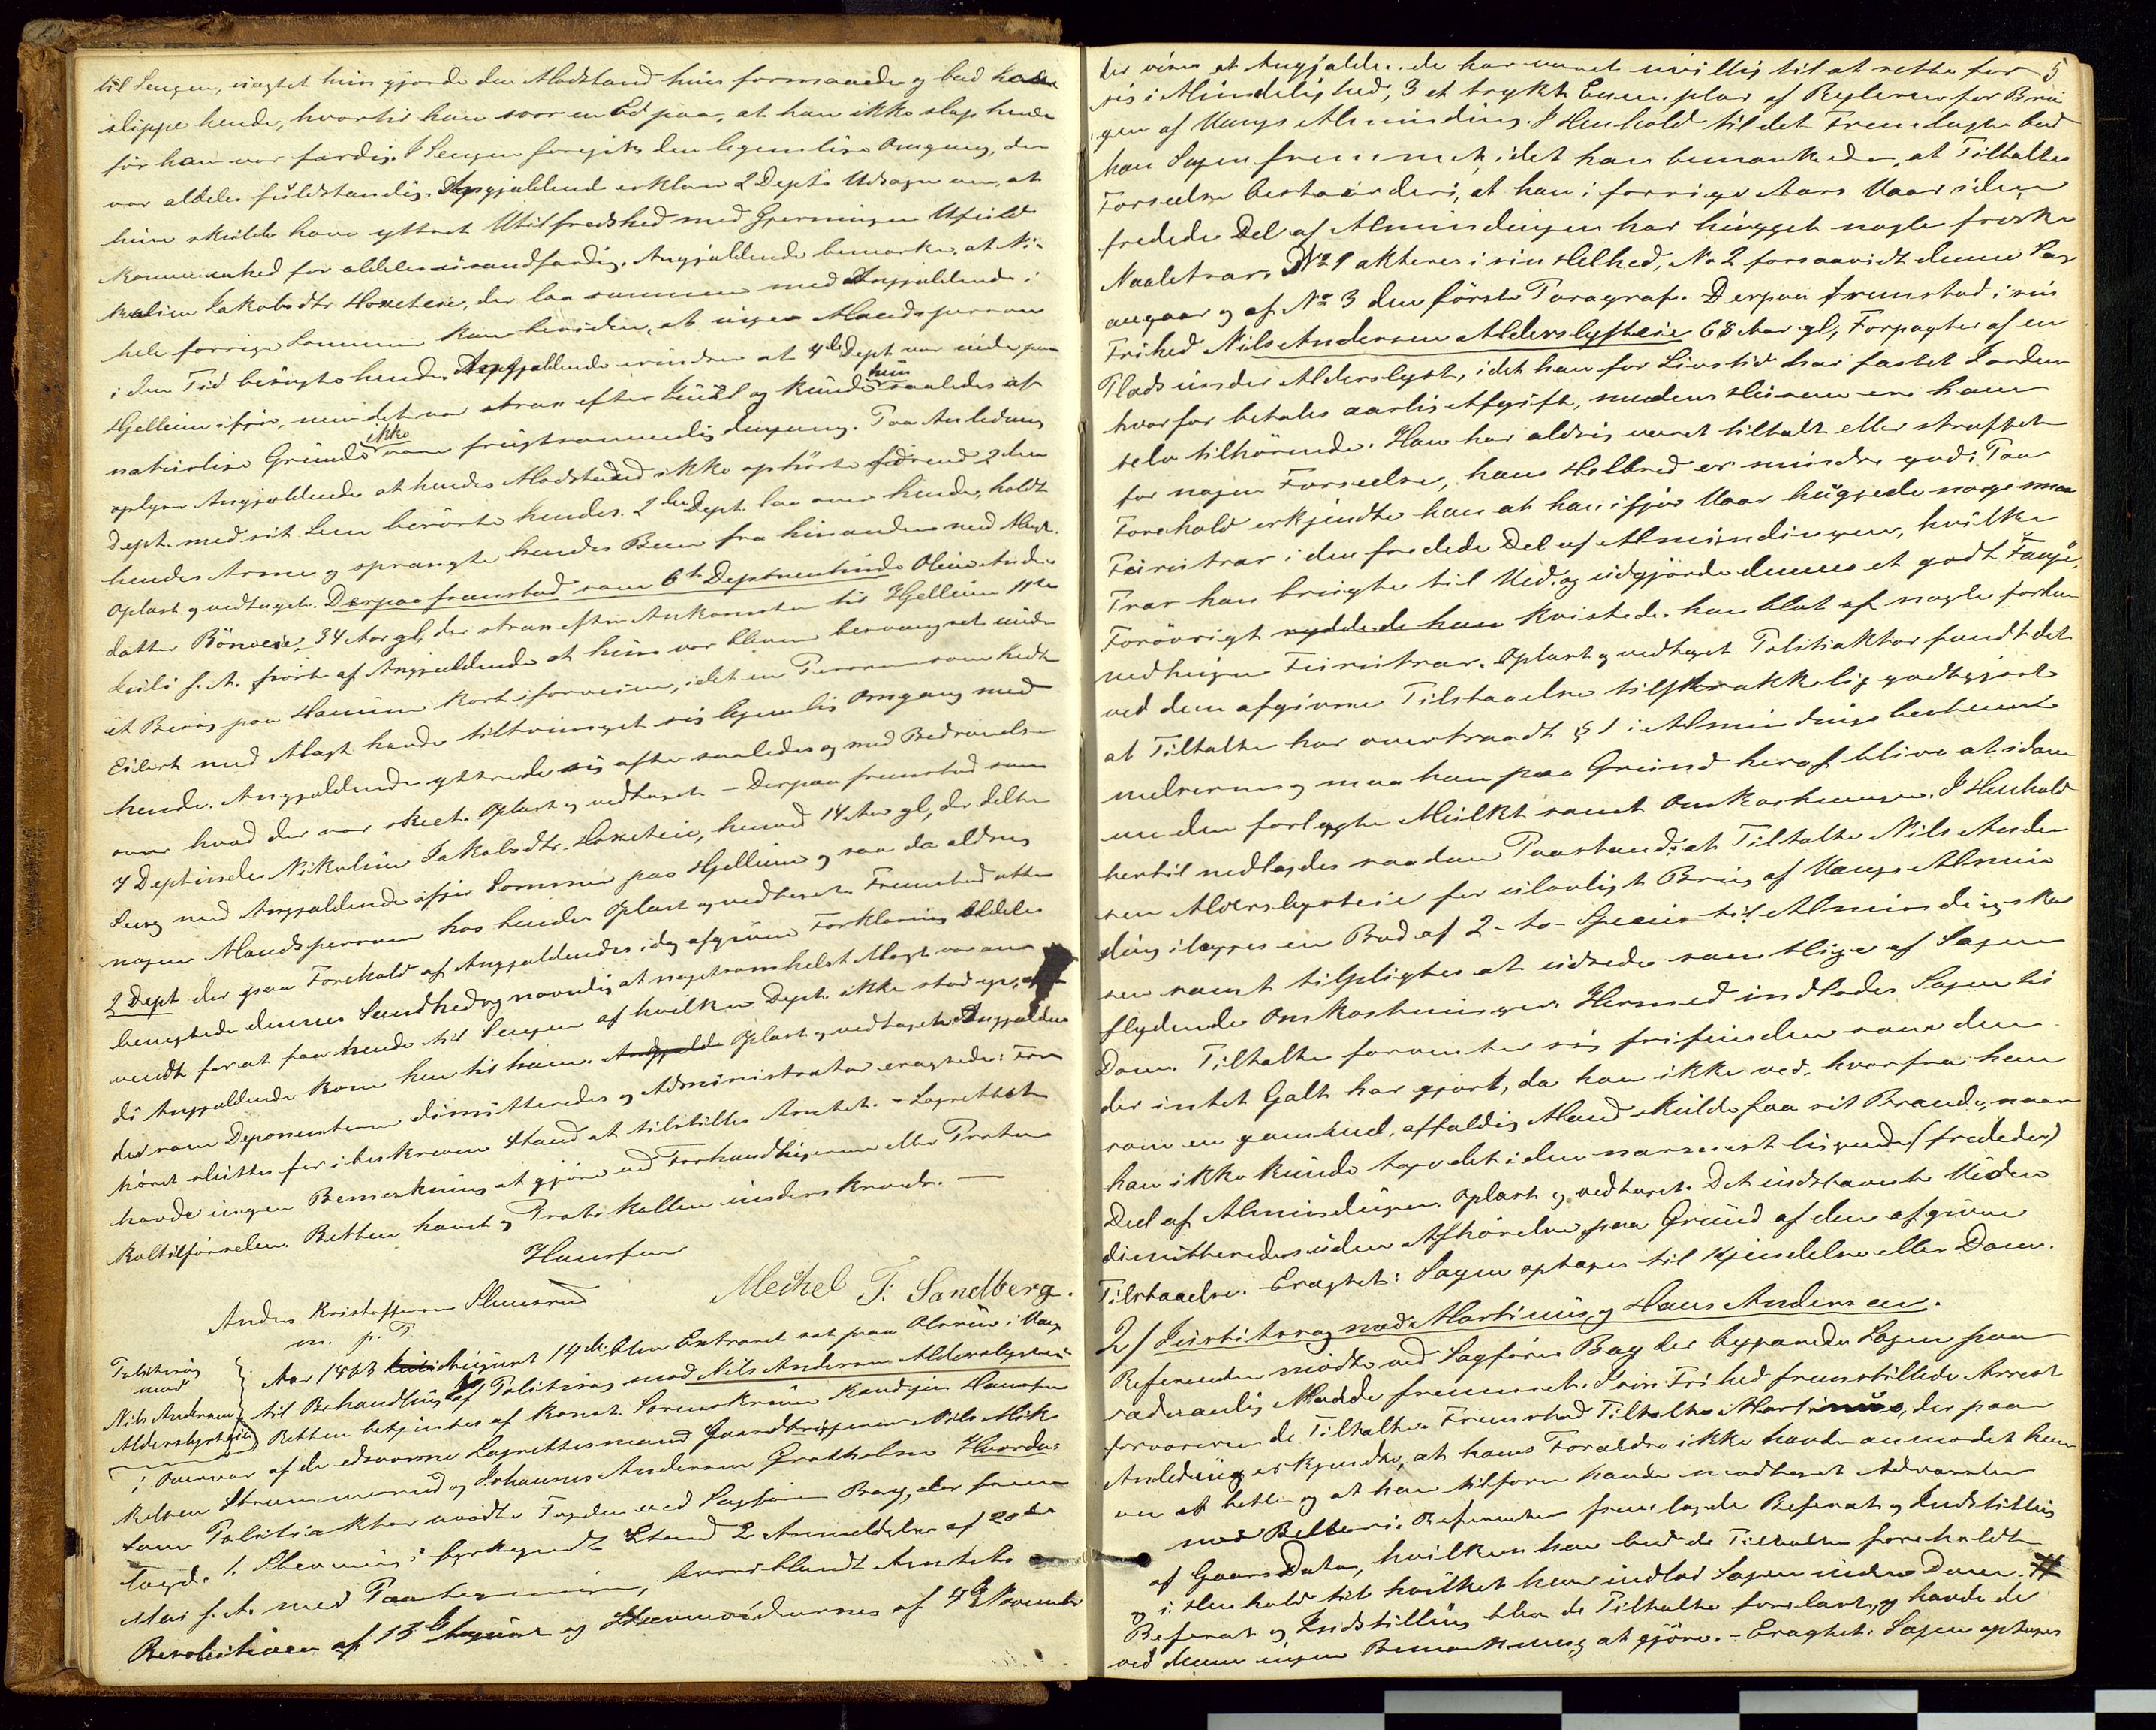 til Sengen, uagtet hun gjorde den Modstand hun formaaede og bad ham
slippe hende, hvortil han svor en Ed paa, at han ikke slap hende
før han var færdig. I Sengen foregik den legemlige Omgang, der
var aldeles fuldstændig. Angjældende erklærer 2 Depts Udsagn om, at
hun skulde have yttret Utilfredshed med Gjerningens Ufuld
kommenhed for aldeles usandfærdig. Angjældende bemærker, at Ni-
kaline Jakobsdtr Hoxeteie, der laa sammen med Angjældende i
hele forrige Sommer kan bevidne, at ingen Mandsperson
i den Tid besøgte hende. Angjældende erindrer at 4de Dept var inde paa
Hjellum ifjor, men det var strax efter Juul og kunde hun saaledes af
naturlige Grunde ikke være frugtsommelig dengang. Paa Anledning
oplyser Angjældende at hendes Modstand ikke ophørte førend 2den
Dept. med sit Lem berørte hendes. 2den Dept. laa over hende, holdt
hendes Arme og sprængte hendes Been fra hinanden med Magt.
Oplæst og vedtaget. Derpaa fremstod som 6te Deponentinde Oline Anders
datter Bönveie, 34 Aar gl, der strax efter Ankomsten til Hjellum 11te
Juli f. A. hørte af Angjældende at hun var bleven besvangret under
et Besøg paa Hamar kort iforveien, idet en Person som hedte
Eilert med Magt havde tiltvunget sig legemlig Omgang med
hende. Angjældende yttrede sig ofte saaledes og med Bedrøvelse
over hvad der var skeet. Oplæst og vedtaget - Derpaa fremstod som
7 Deptinde Nikaline Jakobsdtr. Hoxeteie, henved 14 Aar gl, der delte
Seng med Angjældende ifjor Sommer paa Hjellum og saa da aldrig
nogen Mandsperson hos hende. Oplæst og vedtaget. Fremstod atter
2 Dept der paa Forehold af Angjældendes idag afgivne Forklaring aldeles
benegtede dennes Sandhed og navnlig at nogetsomhelst Magt var an
vendt for at faa hende til Sengen af hvilken Dept. ikke stod op,
di Angjældende kom hen til ham. Oplæst og vedtaget. Angjælden
de som Deponenterne dimitteredes og Administrator eragtede: For
høret sluttes for i beskreven Stand at tilstilles Amtet. - Lagrettet
havde ingen Bemærkning at gjøre ved Forhandlingerne eller Proto
koltilførselen. Retten hævet og Protokollen underskreven. -
Hansen
Anders Kristoffersen Sluesrud
m. p. P.
Meckel F. Sandberg.
Politisag
mod
Nils Andersen
Alderslysteie
Aar 1863 August 14de blev Extraret sat paa Olsrud i Vang
til Behandling af Politisag mod Nils Andersen Alderslysteie
Retten betjentes af konst. Sorenskriver Kand. jur. Hansen
i Overvær af de edsvorne Lagrettesmænd Gaardbrugerne Nils Mik
kelsen Strammerud og Johannes Andersen Gratholen. Hvorda:
Som Politiaktor mødte Fogden ved Sagfører Bay, der frem
lagde 1. Stevning i forkyndt Stand 2 Anmeldelse af 20de
Mai f. A. med Paategninger, hvoriblandt Amtets
Resolutioner af 13de August og Stevnevidnernes af 4de November
der viser at Angjældende har været uvillig til at rette for 5
sig i Mindelighed, 3 et trykt Exemplar af Reglerne for Bru
gen af Vangs Alminding. I Henhold til det Fremlagte bad
han Sagen fremmet, idet han bemærkede, at Tiltaltes
Forseelse bestaar deri, at han i forrige Aars Vaar i den
fredede Del af Almindingen har hugget nogle friske
Naaletrær. No 1 akteres i sin Helhed, No 2 forsaavidt denne Sag
angaar og af No 3 den første Paragraf. Derpaa fremstod i sin
Frihed Nils Andersen Alderslysteie 68 Aar gl, Forpagter af en
Plads under Alderslyst, idet han for Livstid har fæstet Jorden
hvorfor betales aarlig Afgift, medens Husene ere ham
selv tilhørende. Han har aldrig været tiltalt eller straffet
for nogen Forseelse, hans Helbred er mindre god. Paa
Forehold erkjendte han at han ifjor Vaar huggede noge smaa
Furutrær i den fredede Del af Almindingen, hvilke
Trær han brugte til Ved og udgjorde denne et godt Favn,
Forøvrigt kvistede han blot af nogle forhen
nedhugne Furutrær. Oplæst og vedtaget. Politiaktor fandt det
ved den afgivne Tilstaaelse tilstrækkelig godtgjort
at Tiltalte har overtraadt § 1 i Almindings bestem
melserne og maa han paa Grund heraf blive at idøm
me den forlagte Mulkt samt Omkostninger. I Henhold
hertil nedlagdes saadan Paastand: at Tiltalte Nils Ander
sen Alderslysteie for ulovligt Brug af Vangs Almin
ding ilægges en Bod af 2 - to - Specier til Almindingskas
sen samt tilpligtes at udrede samtlige af Sagen
flydende Omkostninger. Hermed indlodes Sagen til
Dom. Tiltalte forventer sig frifunden som den
der intet Galt har gjort, da han ikke ved, hvorfra han
som en gammel, affældig Mand skulde faa sit Brænde, naar
han ikke kunde tage det i den nærmest liggende (fredede)
Deel af Almindingen. Oplæst og vedtaget. Det indstævnte Vidne
dimitteredes uden Afhørelse paa Grund af den afgivne
Tilstaaelse. Eragtet: Sagen optages til Kjendelse eller Dom.
2/ Justitssag mod Martinus og Hans Andersen.
Referenten mødte ved Sagfører Bay der begjærede Sagen paa
sædvanlig Maade fremmet. I sin Frihed fremstillede Arrest
forvareren de Tiltalte. Fremstod Tiltalte Martinus, der paa
Anledning erkjendte, at hans Forældre ikke havde anmodet ham
om at betle og at han tilforn havde modtaget Advarsler
mod Betleri. Referenten fremlagde Referat og Indstilling
af Gaars Dato, hvilken han bad de Tiltalte foreholdt
og i Henhold til hvilket han indlod Sagen under Dom. #
Referat og Indstilling blev de Tiltalte forelæst, og havde de
ved denne ingen Bemærkning at gjøre. - Eragtet: Sagen optages